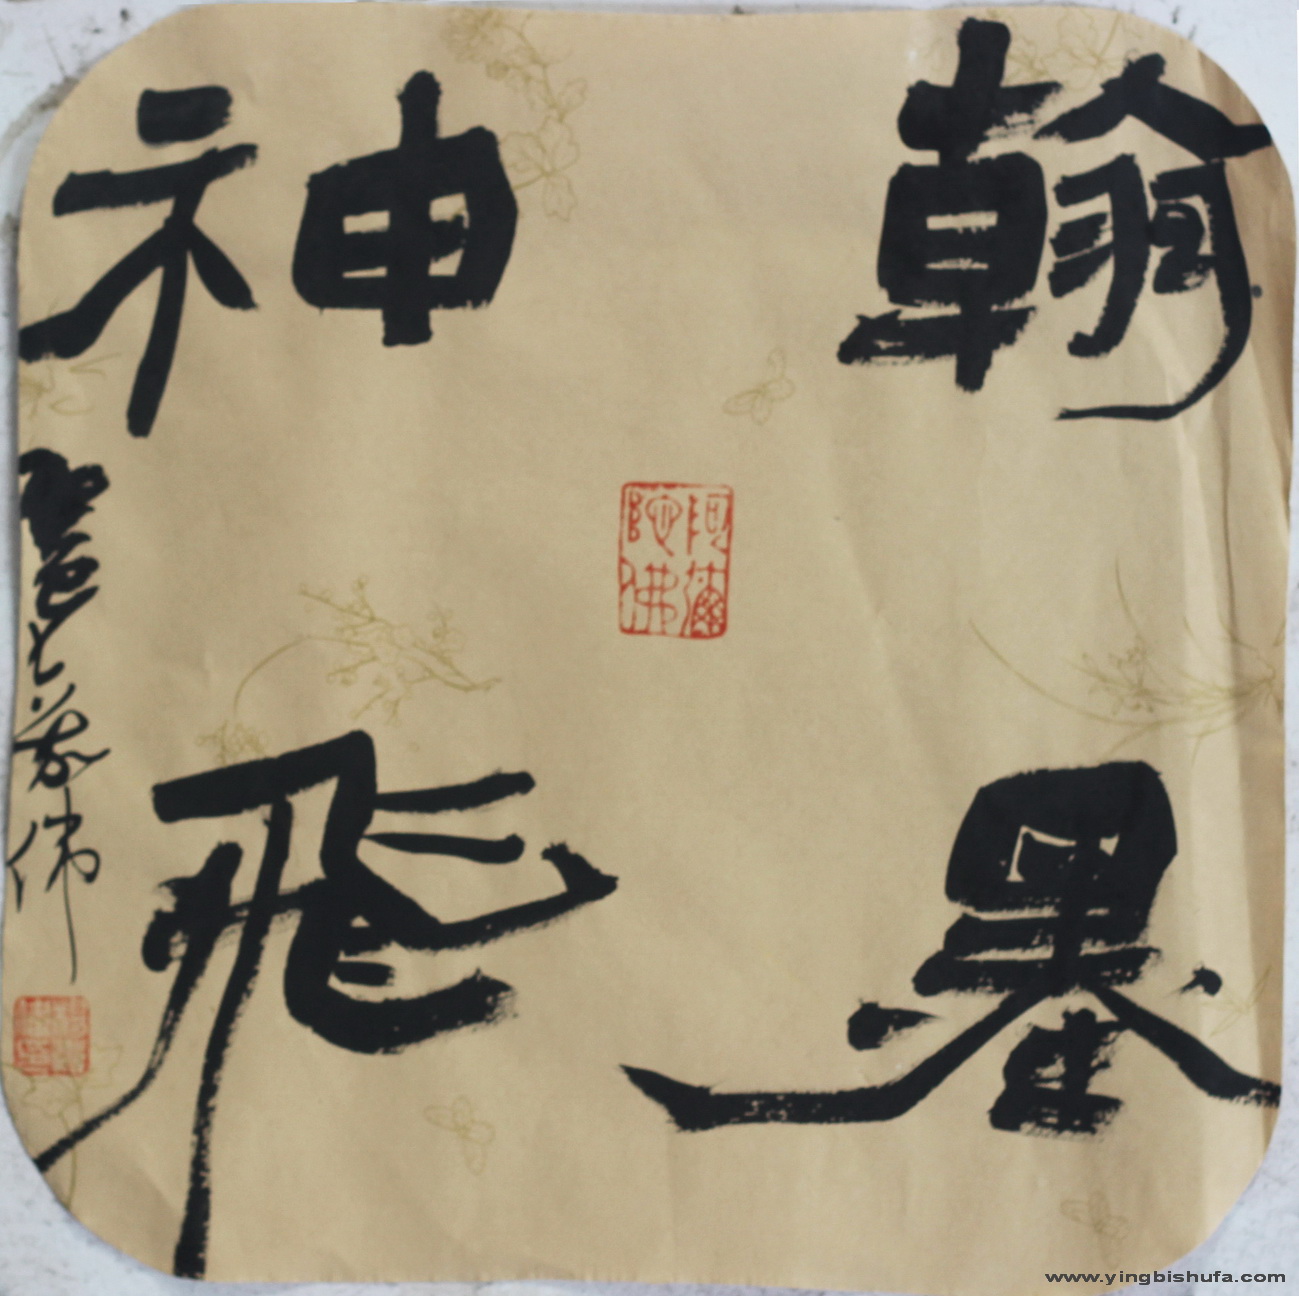 翰墨
神飛
阿彌陀佛
www.yingbishufa.com